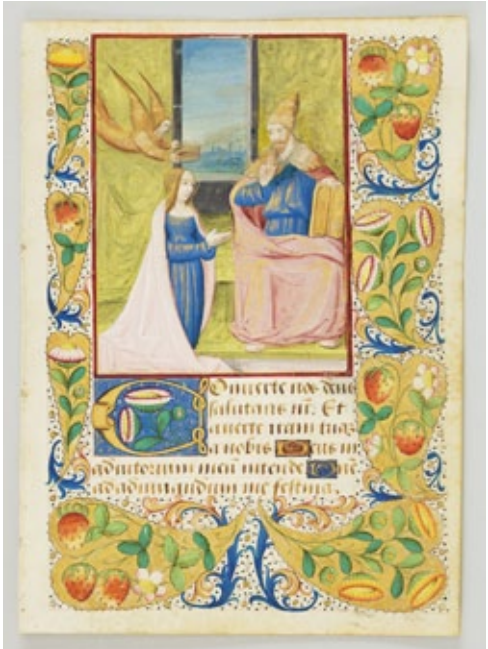 Conuerte nos deus
salutaris nr̄. Et
auerte iram tuaȝ
a nobis Deus in
adiutorium meū intende Dn̄e
ad adiuuandum me festina.